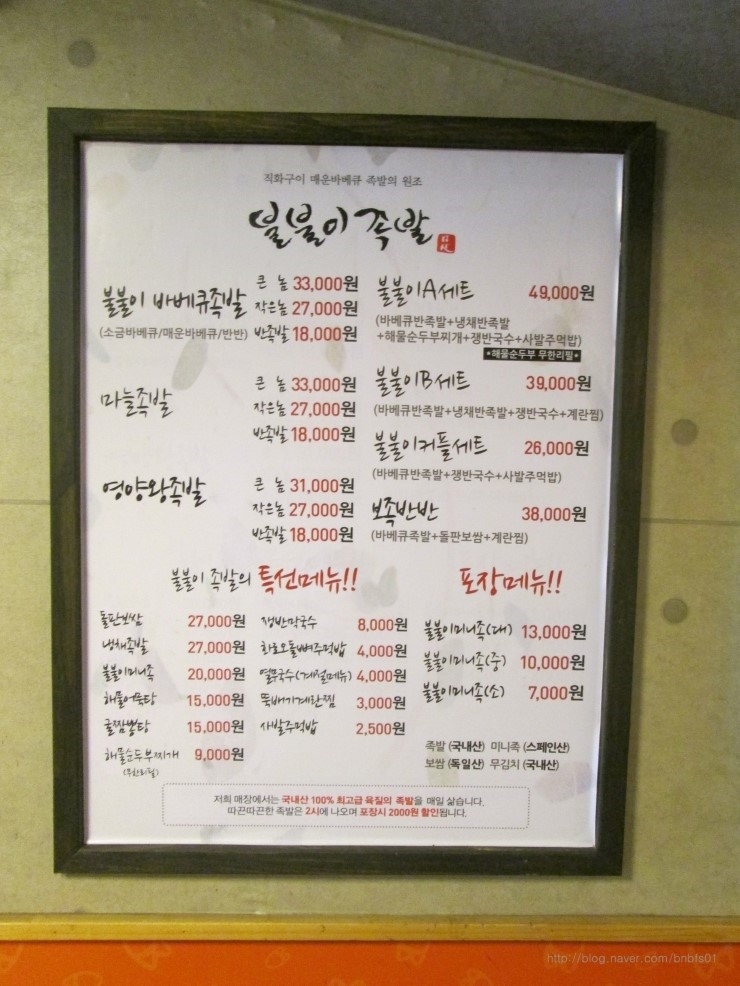 직화구이 매운바베큐 족발의 원조
불불이 족발
불불이 바베큐족발
(소금바베큐/매운바베큐/반반)
큰 놈 33,000원
작은놈 27,000원
반족발 18,000원
마늘족발
큰 놈 33,000원
작은놈 27,000원
반족발 18,000원
영양왕족발
큰 놈 31,000원
작은놈 27,000원
반족발 18,000원
불불이A세트 49,000원
(바베큐반족발+냉채반족발
+해물순두부찌개+쟁반국수+사발주먹밥)
*해물순두부 무한리필*
불불이B세트 39,000원
(바베큐반족발+냉채반족발+쟁반국수+계란찜)
불불이커플세트 26,000원
(바베큐반족발+쟁반국수+사발주먹밥)
보족반반 38,000원
(바베큐족발+돌판보쌈+계란찜)
불불이 족발의 특선메뉴!!
돌판보쌈 27,000원
냉채족발 27,000원
불불이미니족 20,000원
해물어묵탕 15,000원
굴짬뽕탕 15,000원
해물순두부찌개 9,000원
(무한리필)
쟁반막국수 8,000원
화로오돌뼈주먹밥 4,000원
열무국수(계절메뉴) 4,000원
뚝배기계란찜 3,000원
사발주먹밥 2,500원
포장메뉴!!
불불이미니족(대) 13,000원
불불이미니족(중) 10,000원
불불이미니족(소) 7,000원
족발 (국내산) 미니족 (스페인산)
보쌈 (독일산) 무김치 (국내산)
저희 매장에서는 국내산 100% 최고급 육질의 족발을 매일 삶습니다.
따끈따끈한 족발은 2시에 나오며 포장시 2000원 할인됩니다.
http://blog.naver.com/bnbfs01